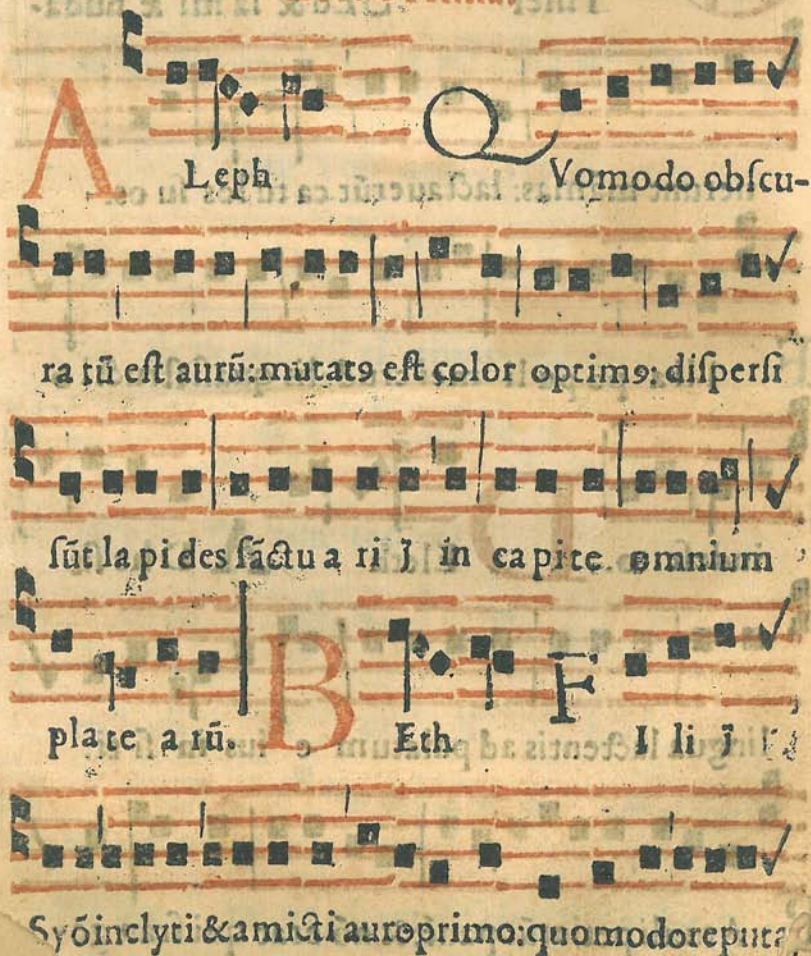 ALeph QVomodo obſcu-
ra tū eſt aurū: mutatꝰ eſt color optimꝰ: diſperſi
ſūt la pi des ſāctu a ri j̄ in ca pite omnium
pla te a rū. BEth FI li j̄
Syō inclyti & amicti auro primo: quomodo reputa